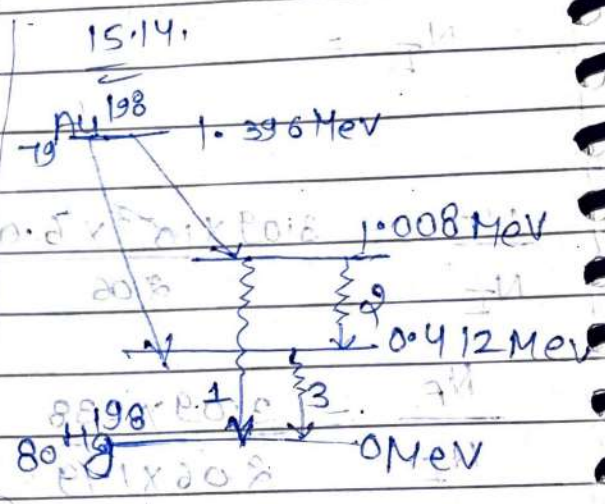 15.14.
79Au198 1.396 MeV
1.008 MeV
2
0.412 MeV
1 3
80Hg198 0 MeV